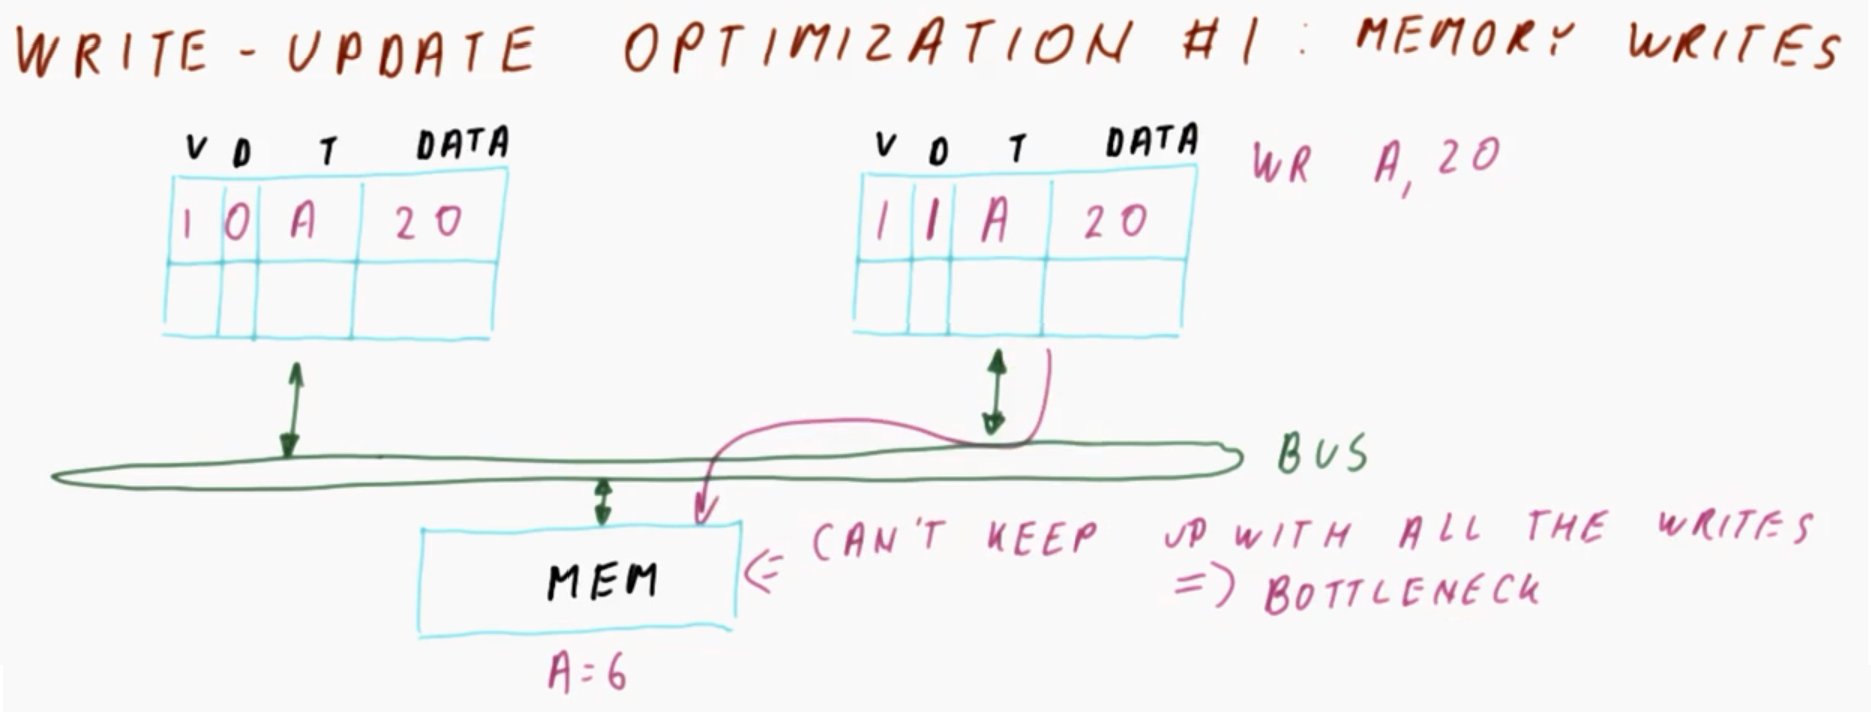 WRITE-UPDATE OPTIMIZATION #1: MEMORY WRITES
V D T DATA
1 0 A 20
V D T DATA
1 1 A 20
WR A, 20
BUS
MEM
A=6
<= CAN'T KEEP UP WITH ALL THE WRITES
=> BOTTLENECK